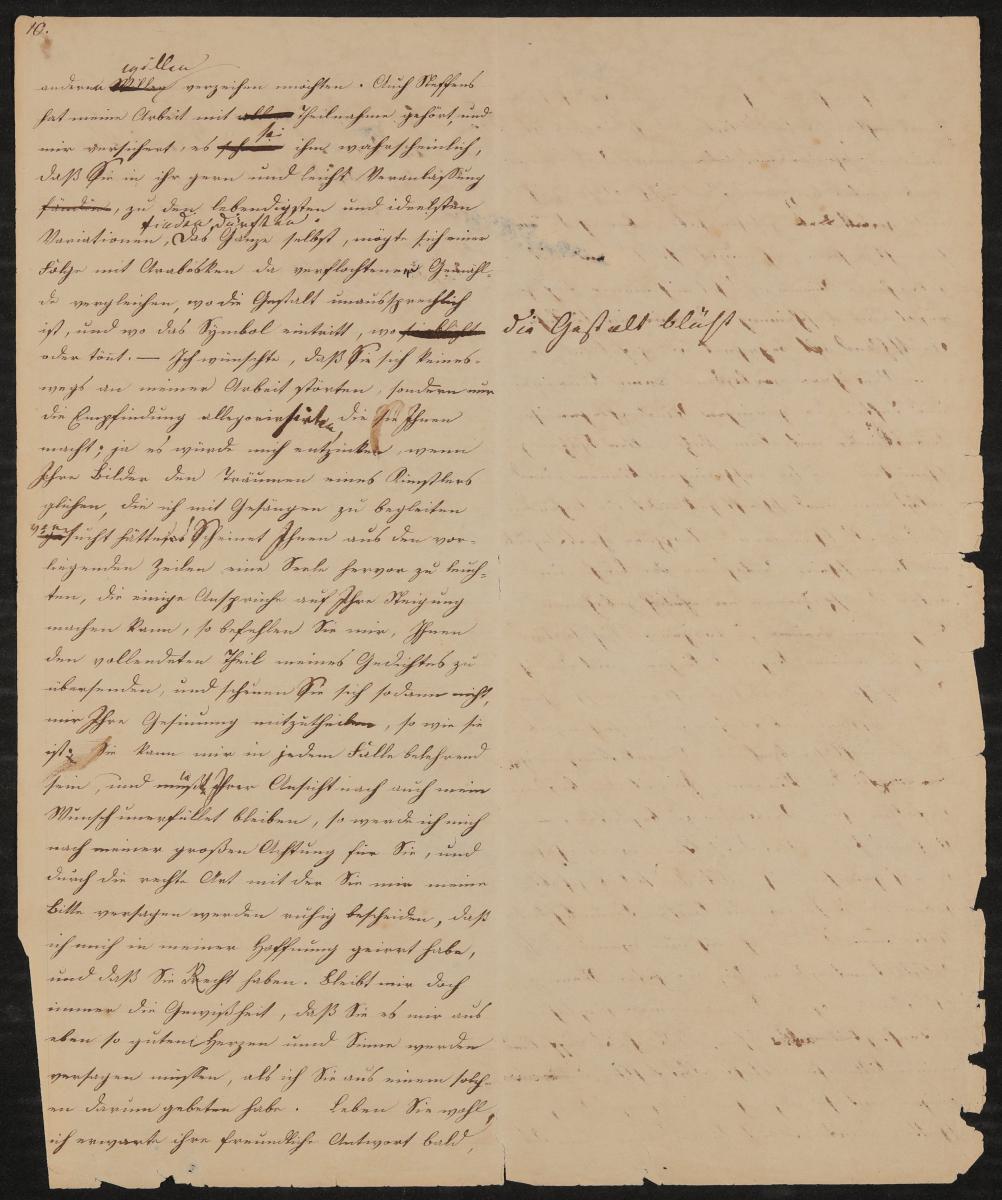 10.
willen
anderen Willen verzeihen möchten. Auch Steffens
hat meine Arbeit mit aller Theilnahme gehört, und
sei
mir versichert, es ihm wahrscheinlich,
daß Sie in ihr gern und leicht Veranlassung
fänden, zu den lebendigsten und ideelsten
finden dürften.
Variationen, Das Ganze selbst, mögte sich einer
Folge mit Arabesken da verflochtener Gemähl-
de vergleichen, wo die Gestalt unaussprechlich
ist, und wo das Symbol eintritt, wo sie blüht die Gestalt blüht
oder tönt. — Ich wünschte, daß Sie sich keines-
wegs an meiner Arbeit störten, sondern nur
die Empfindung allegorisirten die sie Ihnen
macht; ja es würde mich entzücken, wenn
Ihre Bilder den Träumen eines Künstlers
glichen, die ich mit Gesängen zu begleiten
ver
gesucht hätte. Scheinet Ihnen aus den vor-
liegenden Zeilen eine Seele hervor zu leuch-
ten, die einige Ansprüche auf Ihre Neigung
machen kann, so befehlen Sie mir, Ihnen
den vollendeten Theil meines Gedichtes zu
übersenden, und scheuen Sie sich sodann nicht,
mir Ihre Gesinnung mitzutheilen, so wie sie
ist; Sie kann mir in jedem Falle belehrend
sein, und müßte Ihrer Ansicht nach auch mein
Wunsch unerfüllet bleiben, so werde ich mich
nach meiner großen Achtung für Sie, und
durch die rechte Art mit der Sie mir meine
Bitte versagen werden ruhig bescheiden, daß
ich mich in meiner Hoffnung geirrt habe,
und daß Sie Recht haben. Bleibt mir doch
immer die Gewißheit, daß Sie es mir aus
eben so gutem Herzen und Sinne werden
versagen müssen, als ich Sie aus einem solch-
en darum gebeten habe. Leben Sie wohl,
ich erwarte ihre freundliche Antwort bald,